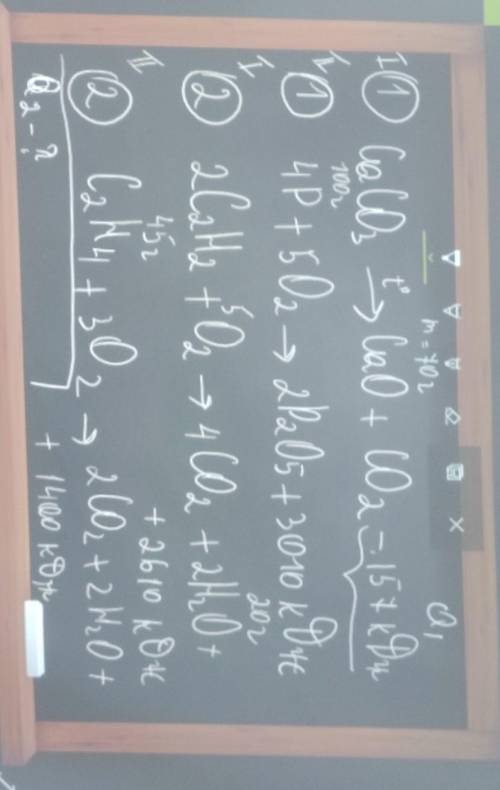 Q₁
m = 70г
I ① CaCO₃ t° → CaO + CO₂ – 157 кДж
100г
① 4P + 5O₂ → 2P₂O₅ + 3010 кДж
20г
I ② 2C₂H₂ + 5O₂ → 4CO₂ + 2H₂O +
+ 2610 кДж
45г
II ② C₂H₄ + 3O₂ → 2CO₂ + 2H₂O +
+ 1400 кДж
Q₂ - ?